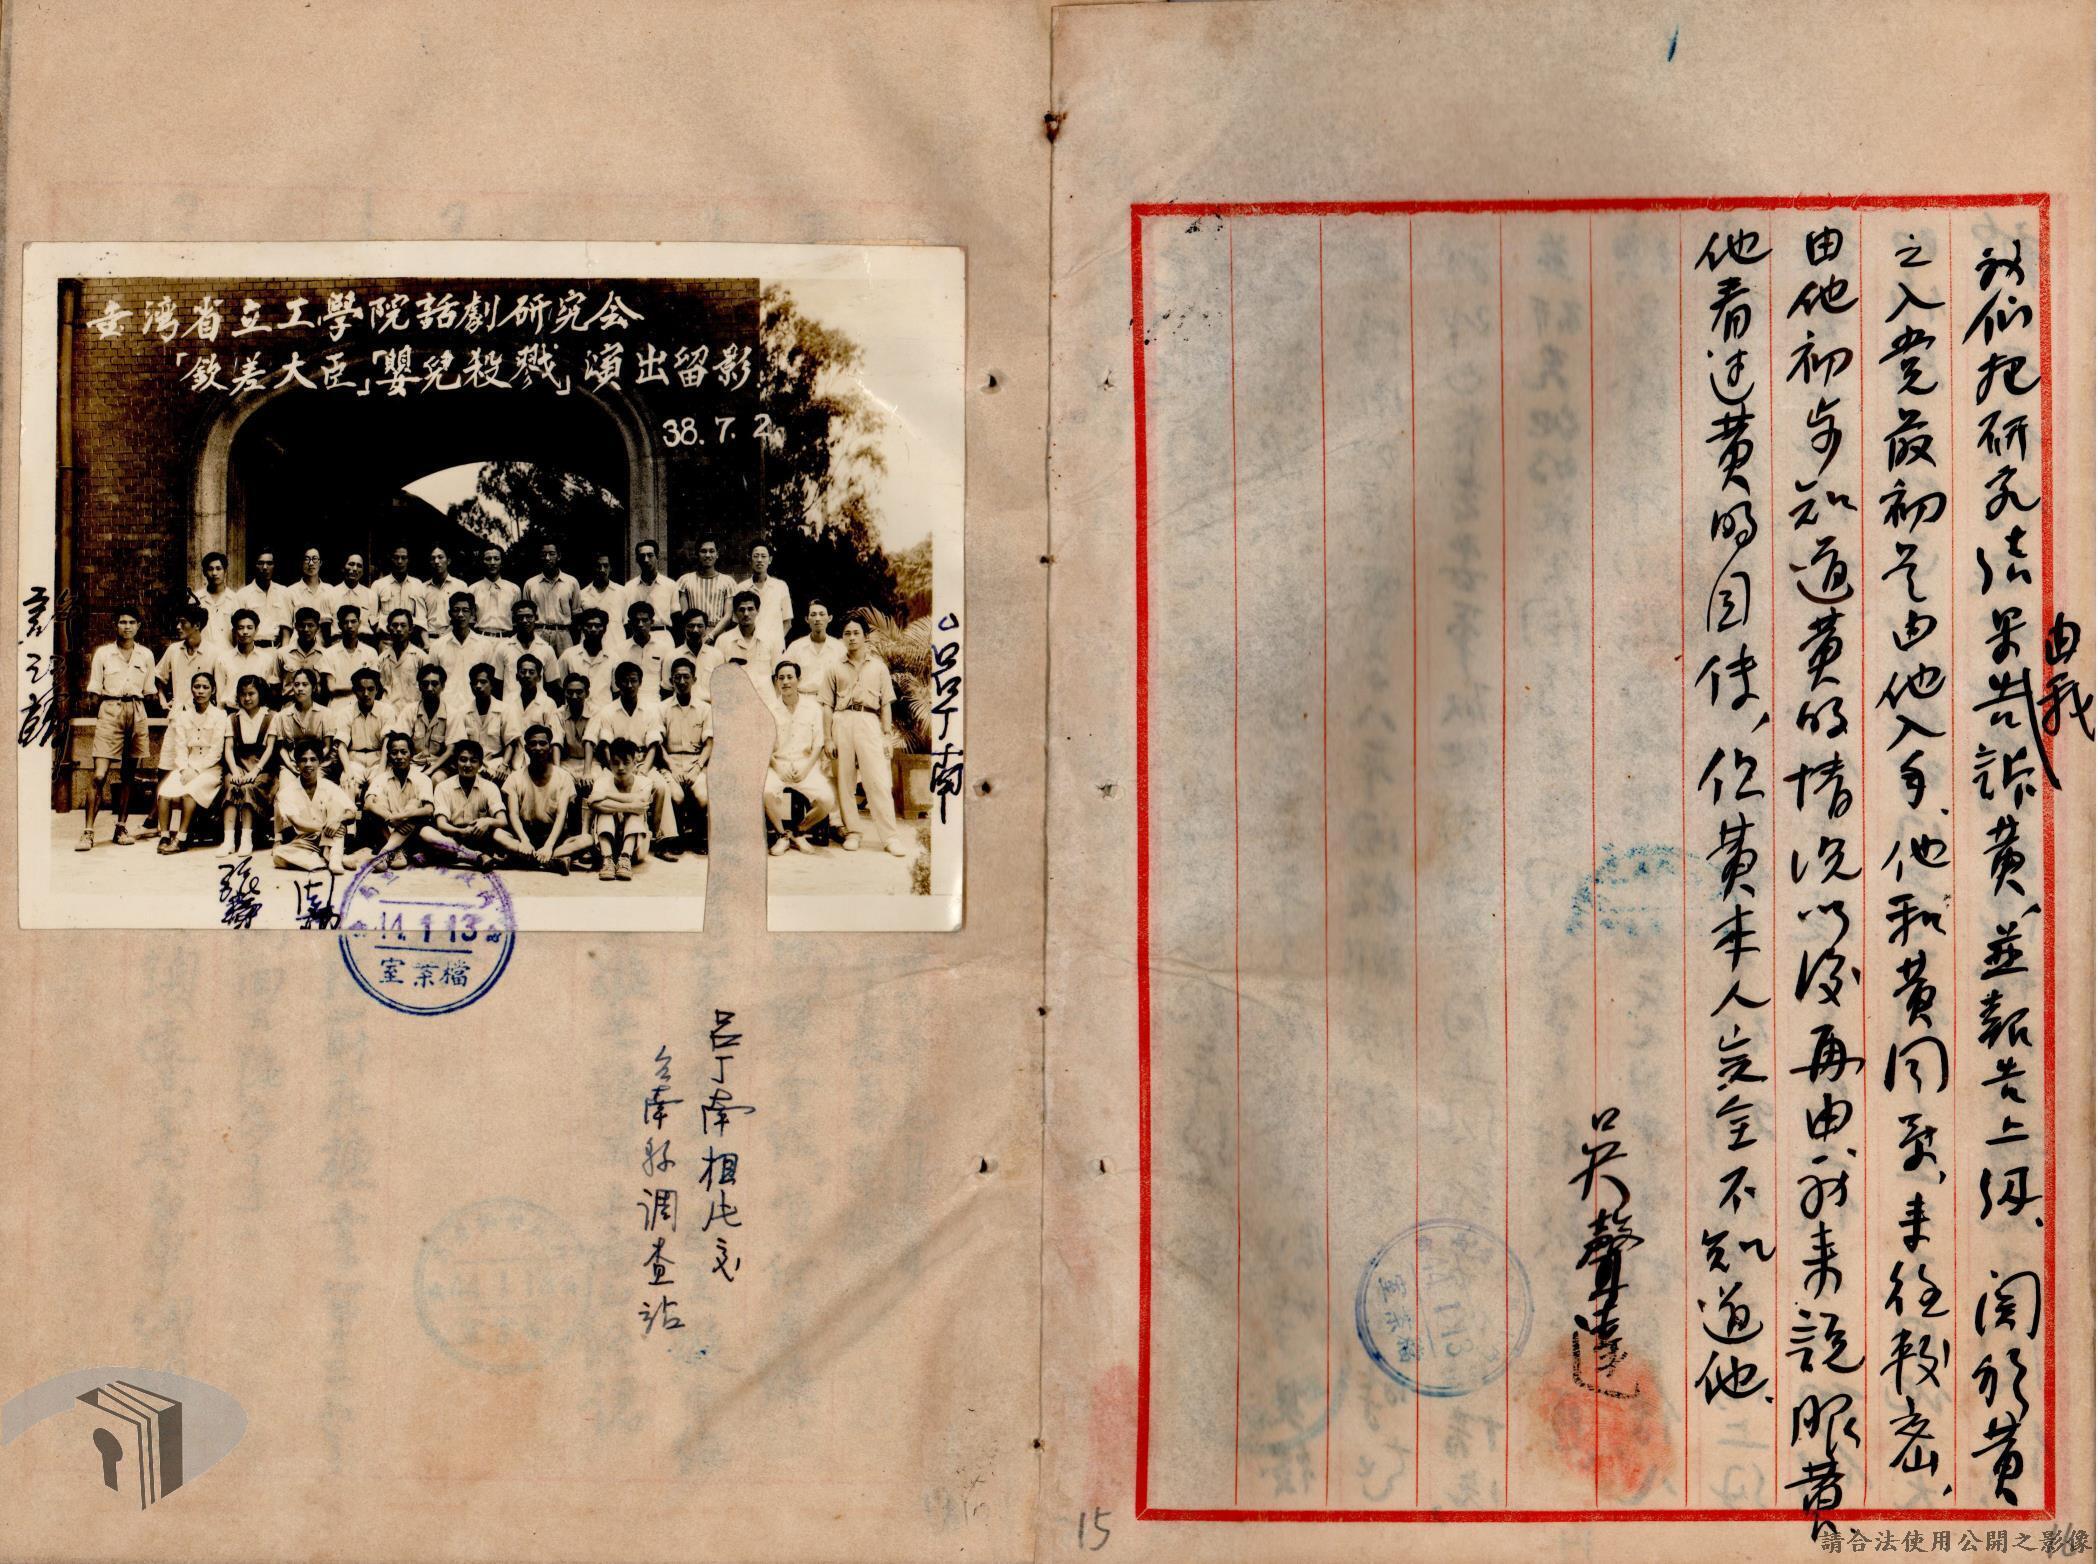 我們把研究結果由我告訴黃，並報告上級、関於黃
之入党最初是由他入手、他和黃同系，来往較密、
由他初步知道黃的情況以後再由我来説服黃、
他看过黃的自传、但黃本人完全不知道他、
吳聲達
臺湾省立工學院話劇研究会
「欽差大臣」「嬰兒殺戮」演出留影
38.7.2
呂丁南
44.1.13
檔案室
呂丁南相片交
台南縣調查站
15
請合法使用公開之影像